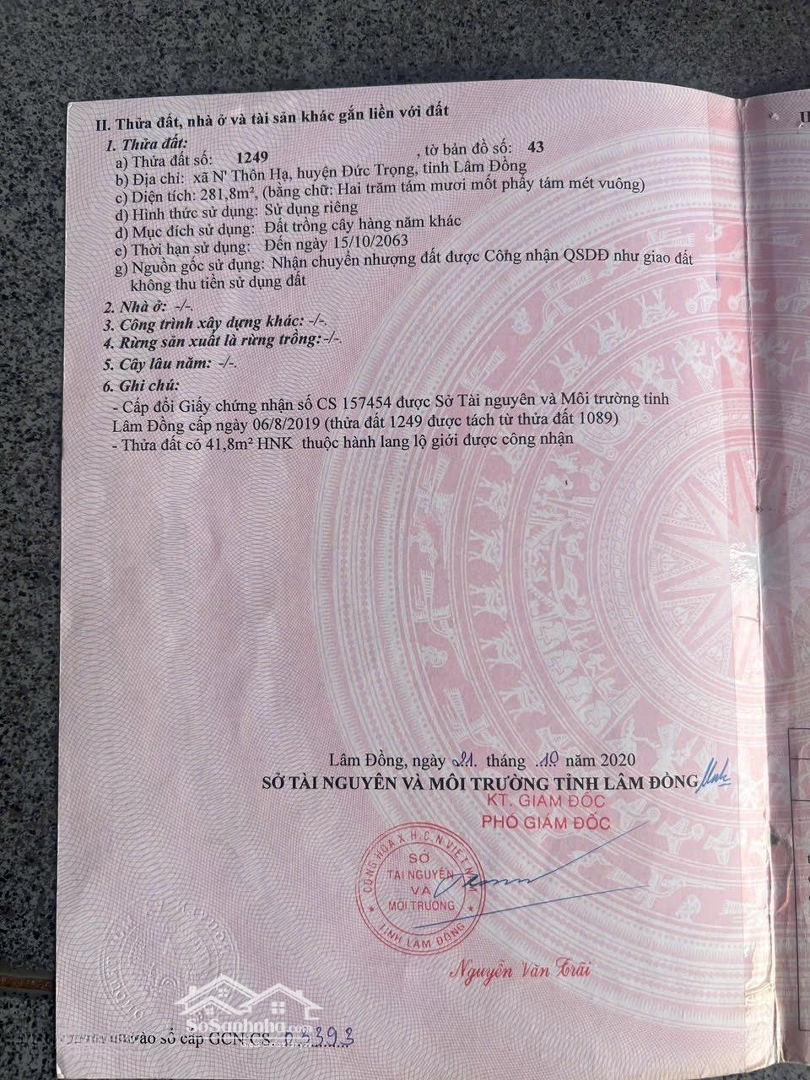 II. Thửa đất, nhà ở và tài sản khác gắn liền với đất
1. Thửa đất:
a) Thửa đất số: 1249 , tờ bản đồ số: 43
b) Địa chỉ: xã N' Thôn Hạ, huyện Đức Trọng, tỉnh Lâm Đồng
c) Diện tích: 281,8m², (bằng chữ: Hai trăm tám mươi mốt phẩy tám mét vuông)
d) Hình thức sử dụng: Sử dụng riêng
đ) Mục đích sử dụng: Đất trồng cây hàng năm khác
e) Thời hạn sử dụng: Đến ngày 15/10/2063
g) Nguồn gốc sử dụng: Nhận chuyển nhượng đất được Công nhận QSDĐ như giao đất
không thu tiền sử dụng đất
2. Nhà ở: -/-.
3. Công trình xây dựng khác: -/-.
4. Rừng sản xuất là rừng trồng: -/-.
5. Cây lâu năm: -/-.
6. Ghi chú:
- Cấp đổi Giấy chứng nhận số CS 157454 được Sở Tài nguyên và Môi trường tỉnh
Lâm Đồng cấp ngày 06/8/2019 (thửa đất 1249 được tách từ thửa đất 1089)
- Thửa đất có 41,8m² HNK thuộc hành lang lộ giới được công nhận
Lâm Đồng, ngày 21 tháng 10 năm 2020
SỞ TÀI NGUYÊN VÀ MÔI TRƯỜNG TỈNH LÂM ĐỒNG
KT. GIÁM ĐỐC
PHÓ GIÁM ĐỐC
CỘNG HÒA X.H.C.N VIỆT NAM
SỞ
TÀI NGUYÊN
VÀ
MÔI TRƯỜNG
TỈNH LÂM ĐỒNG
Nguyễn Văn Trãi
SoSanhnha.com
vào sổ cấp GCN:CS 03393